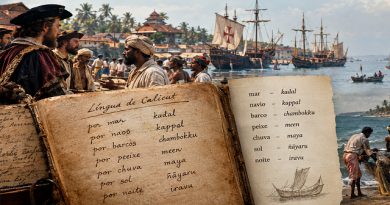 Língua de Calicut
por mar kadal
por naoo kappal
por. barcos chambokku
por peixe meen
por chuva maya
por sol ñāyaru
por noite iravu
mar – kadal
navio – kappal
barco – chambokku
peixe – meen
chuva – maya
sol – ñāyaru
noite – iravu